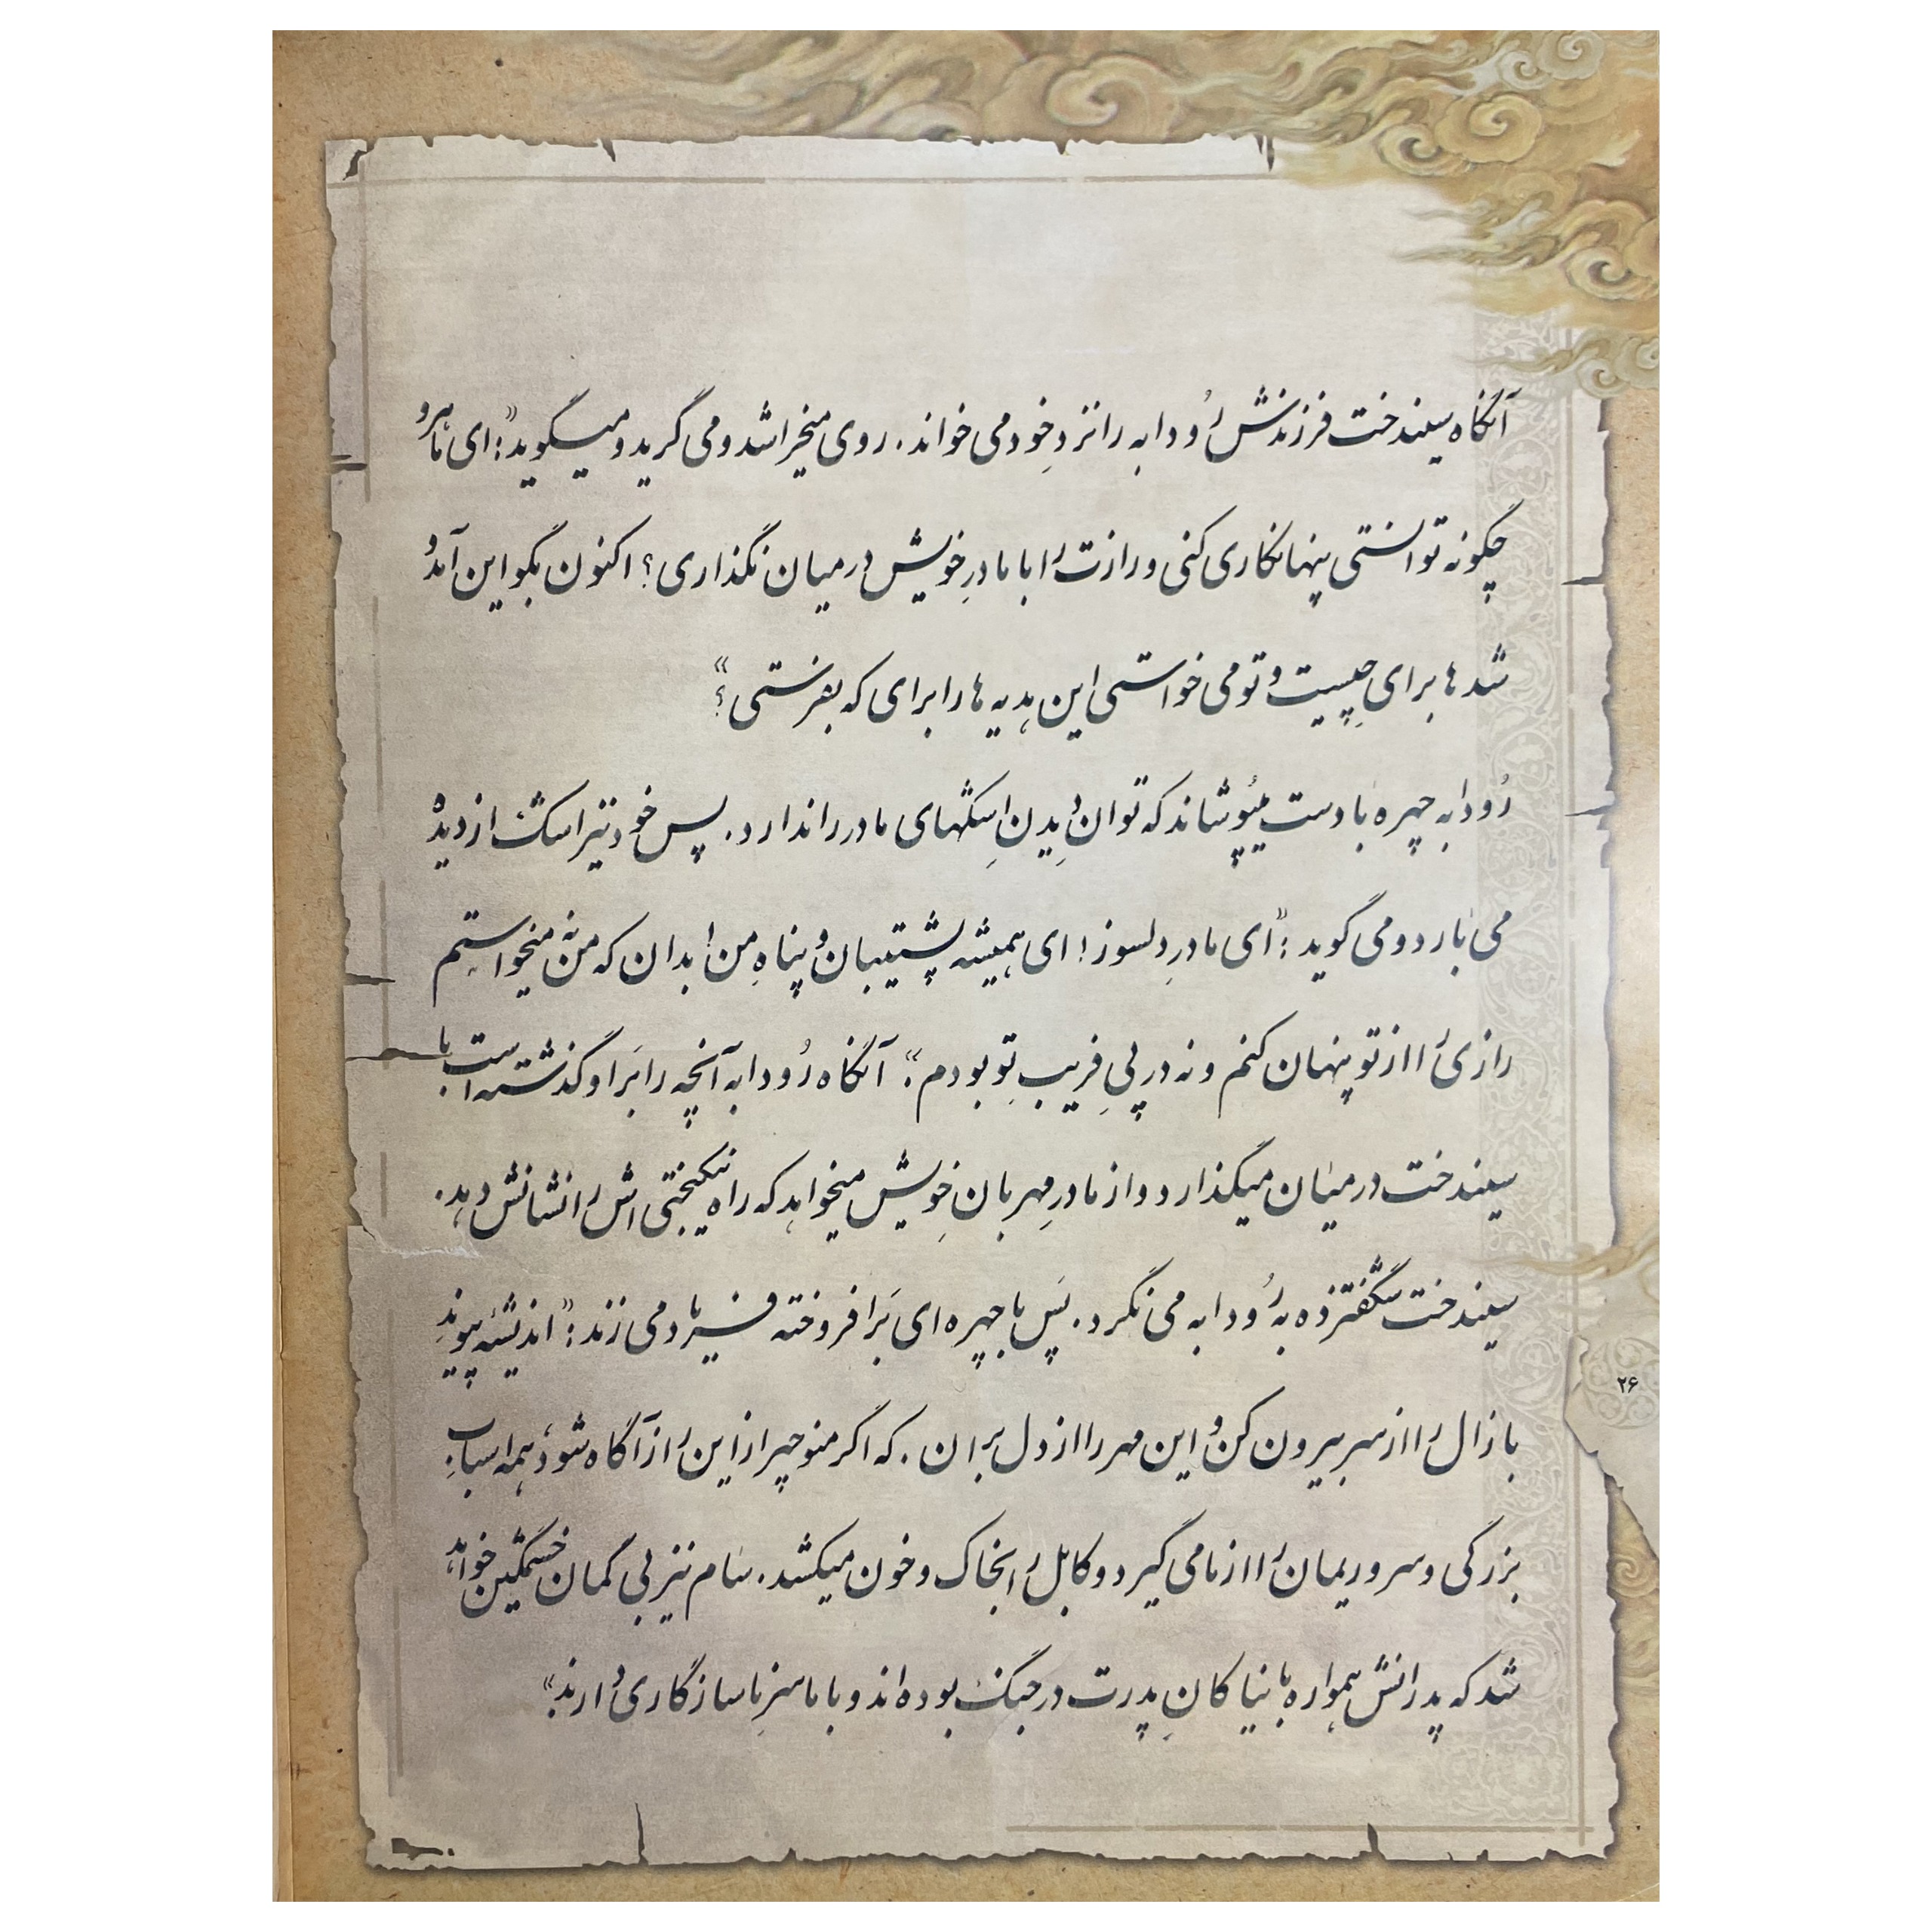 آنگاه سیندخت فرزندش رُودابه را نزدِ خود می خواند. روی میخراشد و می گرید و میگوید: «ای ماهرو
چگونه توانستی پنهانکاری کنی و رازت را با مادرِ خویش در میان نگذاری؟ اکنون بگو این آمد و
شدها برای چیست و تو می خواستی این هدیه ها را برای که بفرستی؟»
رُودابه چهره با دست میپُوشاند که توانِ دیدنِ اشکهای مادر را ندارد. پس خود نیز اشک از دیده
می بارد و می گوید: «ای مادرِ دلسوز! ای همیشه پشتیبان و پناهِ من! بدان که من نه میخواستم
رازی را از تو پنهان کنم و نه در پیِ فریبِ تو بودم.» آنگاه رُودابه آنچه را بَر او گذشته است با
سیندخت در میان میگذارد و از مادرِ مهربانِ خویش میخواهد که راه نیکبختی اش را نشانش دهد.
سیندخت شگفتزده به رُودابه می نگرد. پَس با چهره ای بَرافروخته فریاد می زند: «اندیشهٔ پیوندِ
با زال را از سر بیرون کن و این مهر را از دل بران. که اگر منوچهر از این راز آگاه شود، همه اسبابِ
بزرگی و سروریمان را از ما می گیرد و کابل را بخاک و خون میکشد. سام نیز بی گمان خشمگین خواهد
شد که پدرانش همواره با نیاکانِ پدرت در جنگ بوده اند و با ما سرِ ناسازگاری دارند.»
۲۶